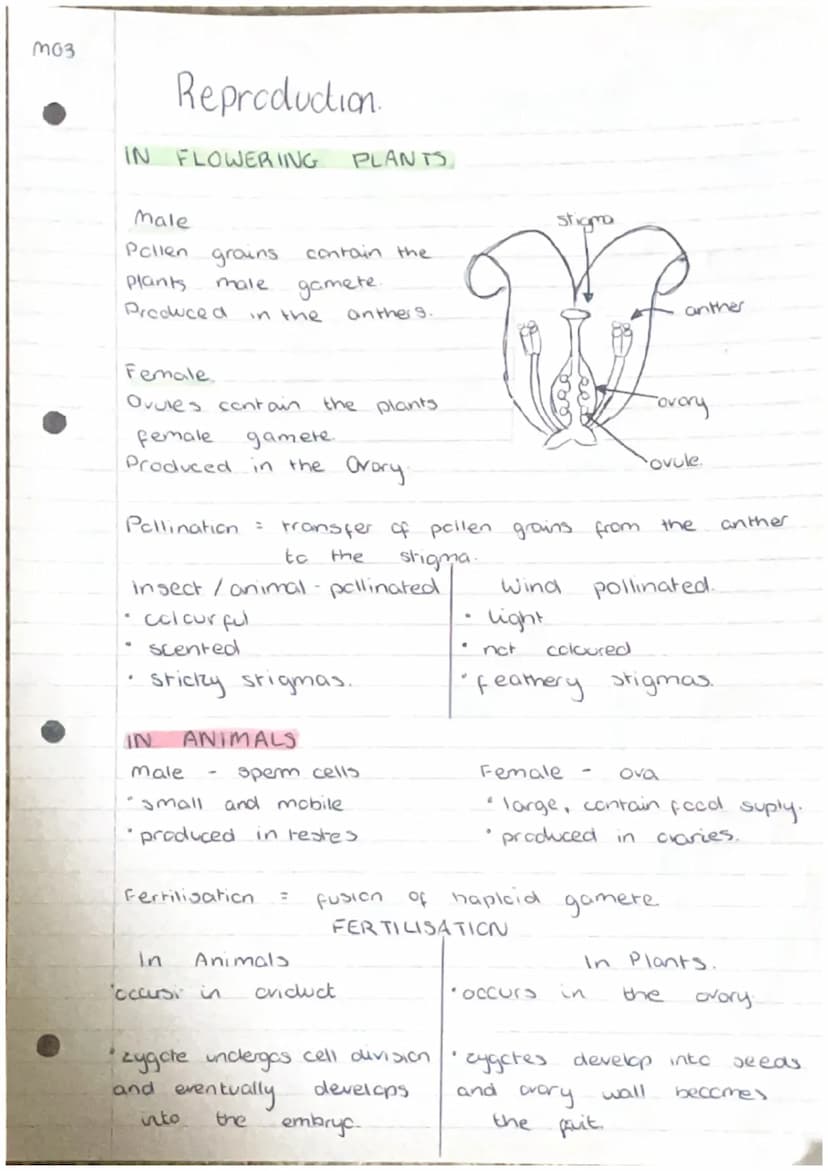 MO3
Reproduction.
IN FLOWERING PLANTS
Male
Pollen grains contain the
plants male gamete.
Produced in the anthers.
stigma
anther
ovary
ovule.
Female
Ovules contain the plants
female gamete
Produced in the Ovary.
Pollination = transfer of pollen grains from the anther
to the stigma.
insect / animal - pollinated
• colourful
• scented
• sticky stigmas.
Wind pollinated.
• light
• not coloured
• feathery stigmas.
IN ANIMALS
Male - sperm cells
• small and mobile
• produced in testes
Female - ova
• large, contain food suply.
• produced in ovaries.
Fertilisation = fusion of haploid gamete
FERTILISATION
In Animals
• in oviduct
• zygote undergos cell division
and eventually develops
into the embryo.
In Plants.
• occurs in the ovary.
• zygotes develop into seeds
and ovary wall becomes
the fruit.